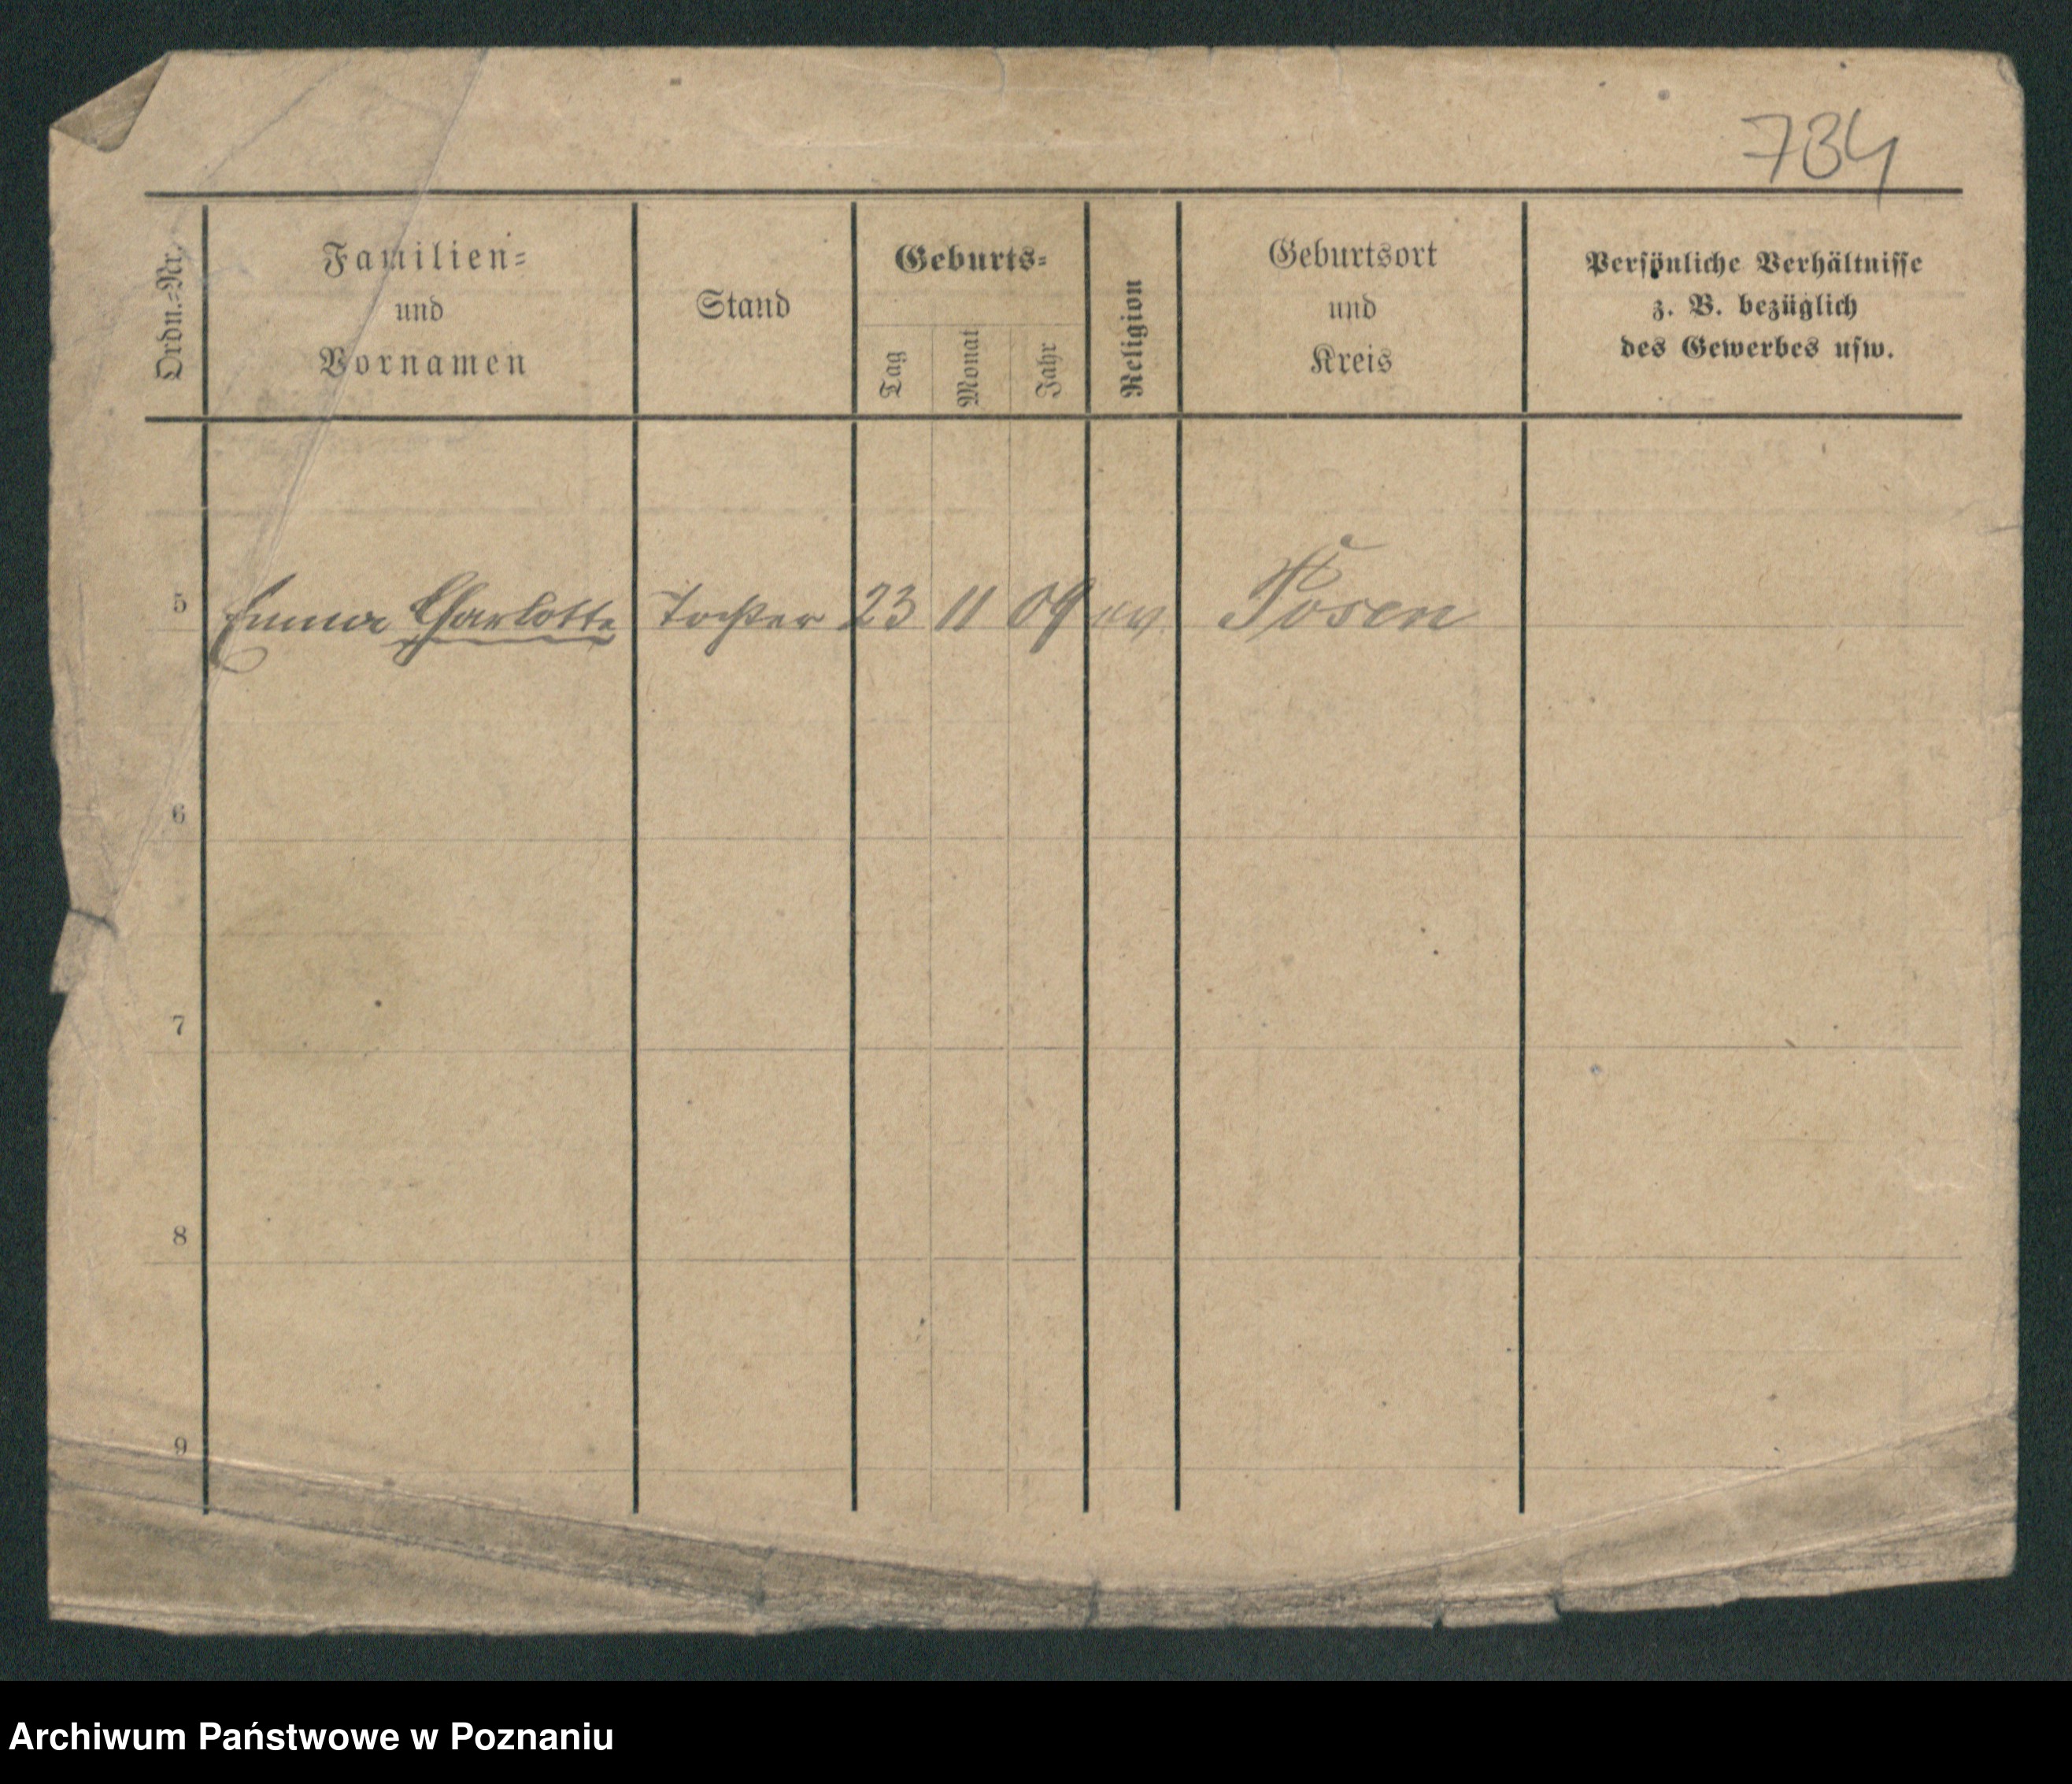 734
Ordn.-Nr.
Familien-
und
Vornamen
Stand
Geburts-
Tag
Monat
Jahr
Religion
Geburtsort
und
Kreis
Persönliche Verhältnisse
z. B. bezüglich
des Gewerbes usw.
5 Emma Charlotte Tochter 23 11 09 ev. Posen
6
7
8
9
Archiwum Państwowe w Poznaniu